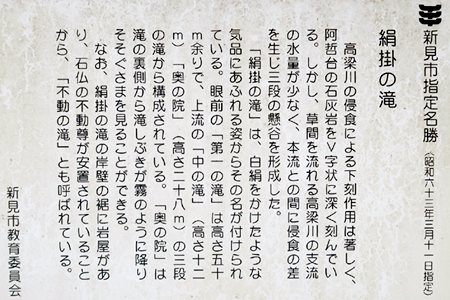 新見市指定名勝（昭和六十三年三月十一日指定）
絹掛の滝
高梁川の侵食による下刻作用は著しく、
阿哲台の石灰岩をＶ字状に深く刻んでい
る。しかし、草間を流れる高梁川の支流
の水量が少なく、本流との間に侵食の差
を生じ三段の懸谷を形成した。
「絹掛の滝」は、白絹をかけたような
気品にあふれる姿からその名が付けられ
ている。眼前の「第一の滝」は高さ五十
ｍ余りで、上流の「中の滝」（高さ十二
ｍ）「奥の院」（高さ二十八ｍ）の三段
の滝から構成されている。「奥の院」は
滝の裏側から滝しぶきが霧のように降り
そそぐさまを見ることができる。
なお、絹掛の滝の岸壁の裾に岩屋があ
り、石仏の不動尊が安置されていること
から、「不動の滝」とも呼ばれている。
新見市教育委員会